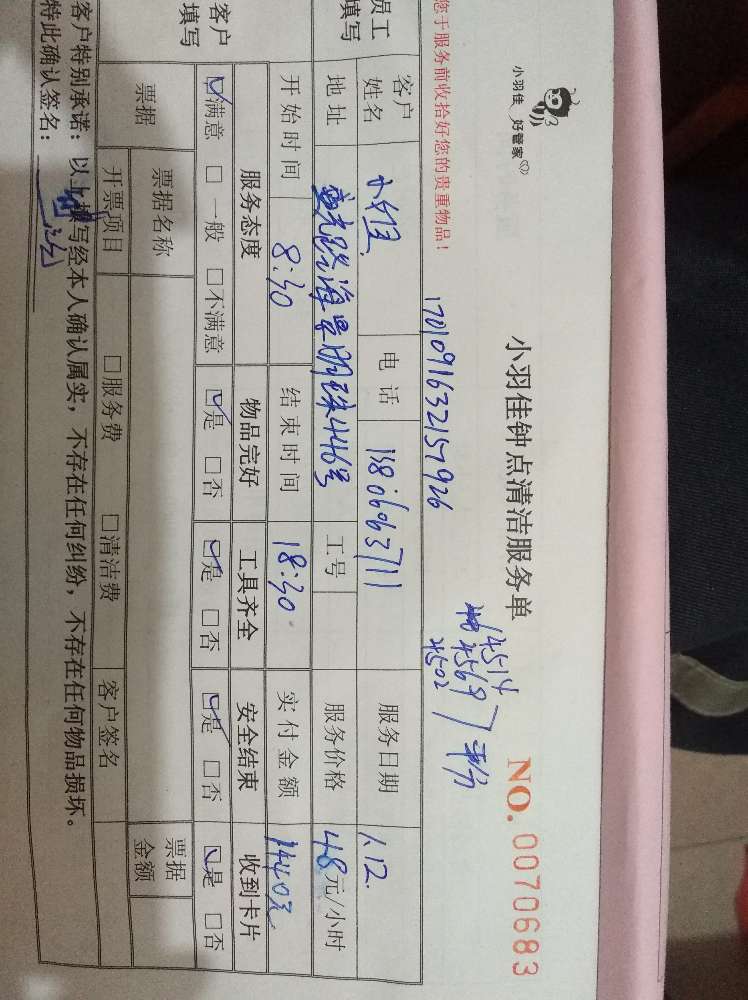 小羽佳 好管家
小羽佳钟点清洁服务单
NO. 0070683
您于服务前收拾好您的贵重物品!
1701091632157926
4514
4569
4502
平分
员工填写
客户姓名
电话 13806063711
服务日期 1.12.
地址 海景明珠446号
工号
服务价格 48元/小时
开始时间 8:30
结束时间 18:30
实付金额 1440元
客户填写
服务态度 物品完好 工具齐全 安全结束 收到卡片
☑满意 □一般 □不满意 ☑是 □否 ☑是 □否 ☑是 □否 ☑是 □否
票据
票据名称
票据金额
开票项目 □服务费 □清洁费 客户签名
客户特别承诺:以上填写经本人确认属实,不存在任何纠纷,不存在任何物品损坏。
特此确认签名: